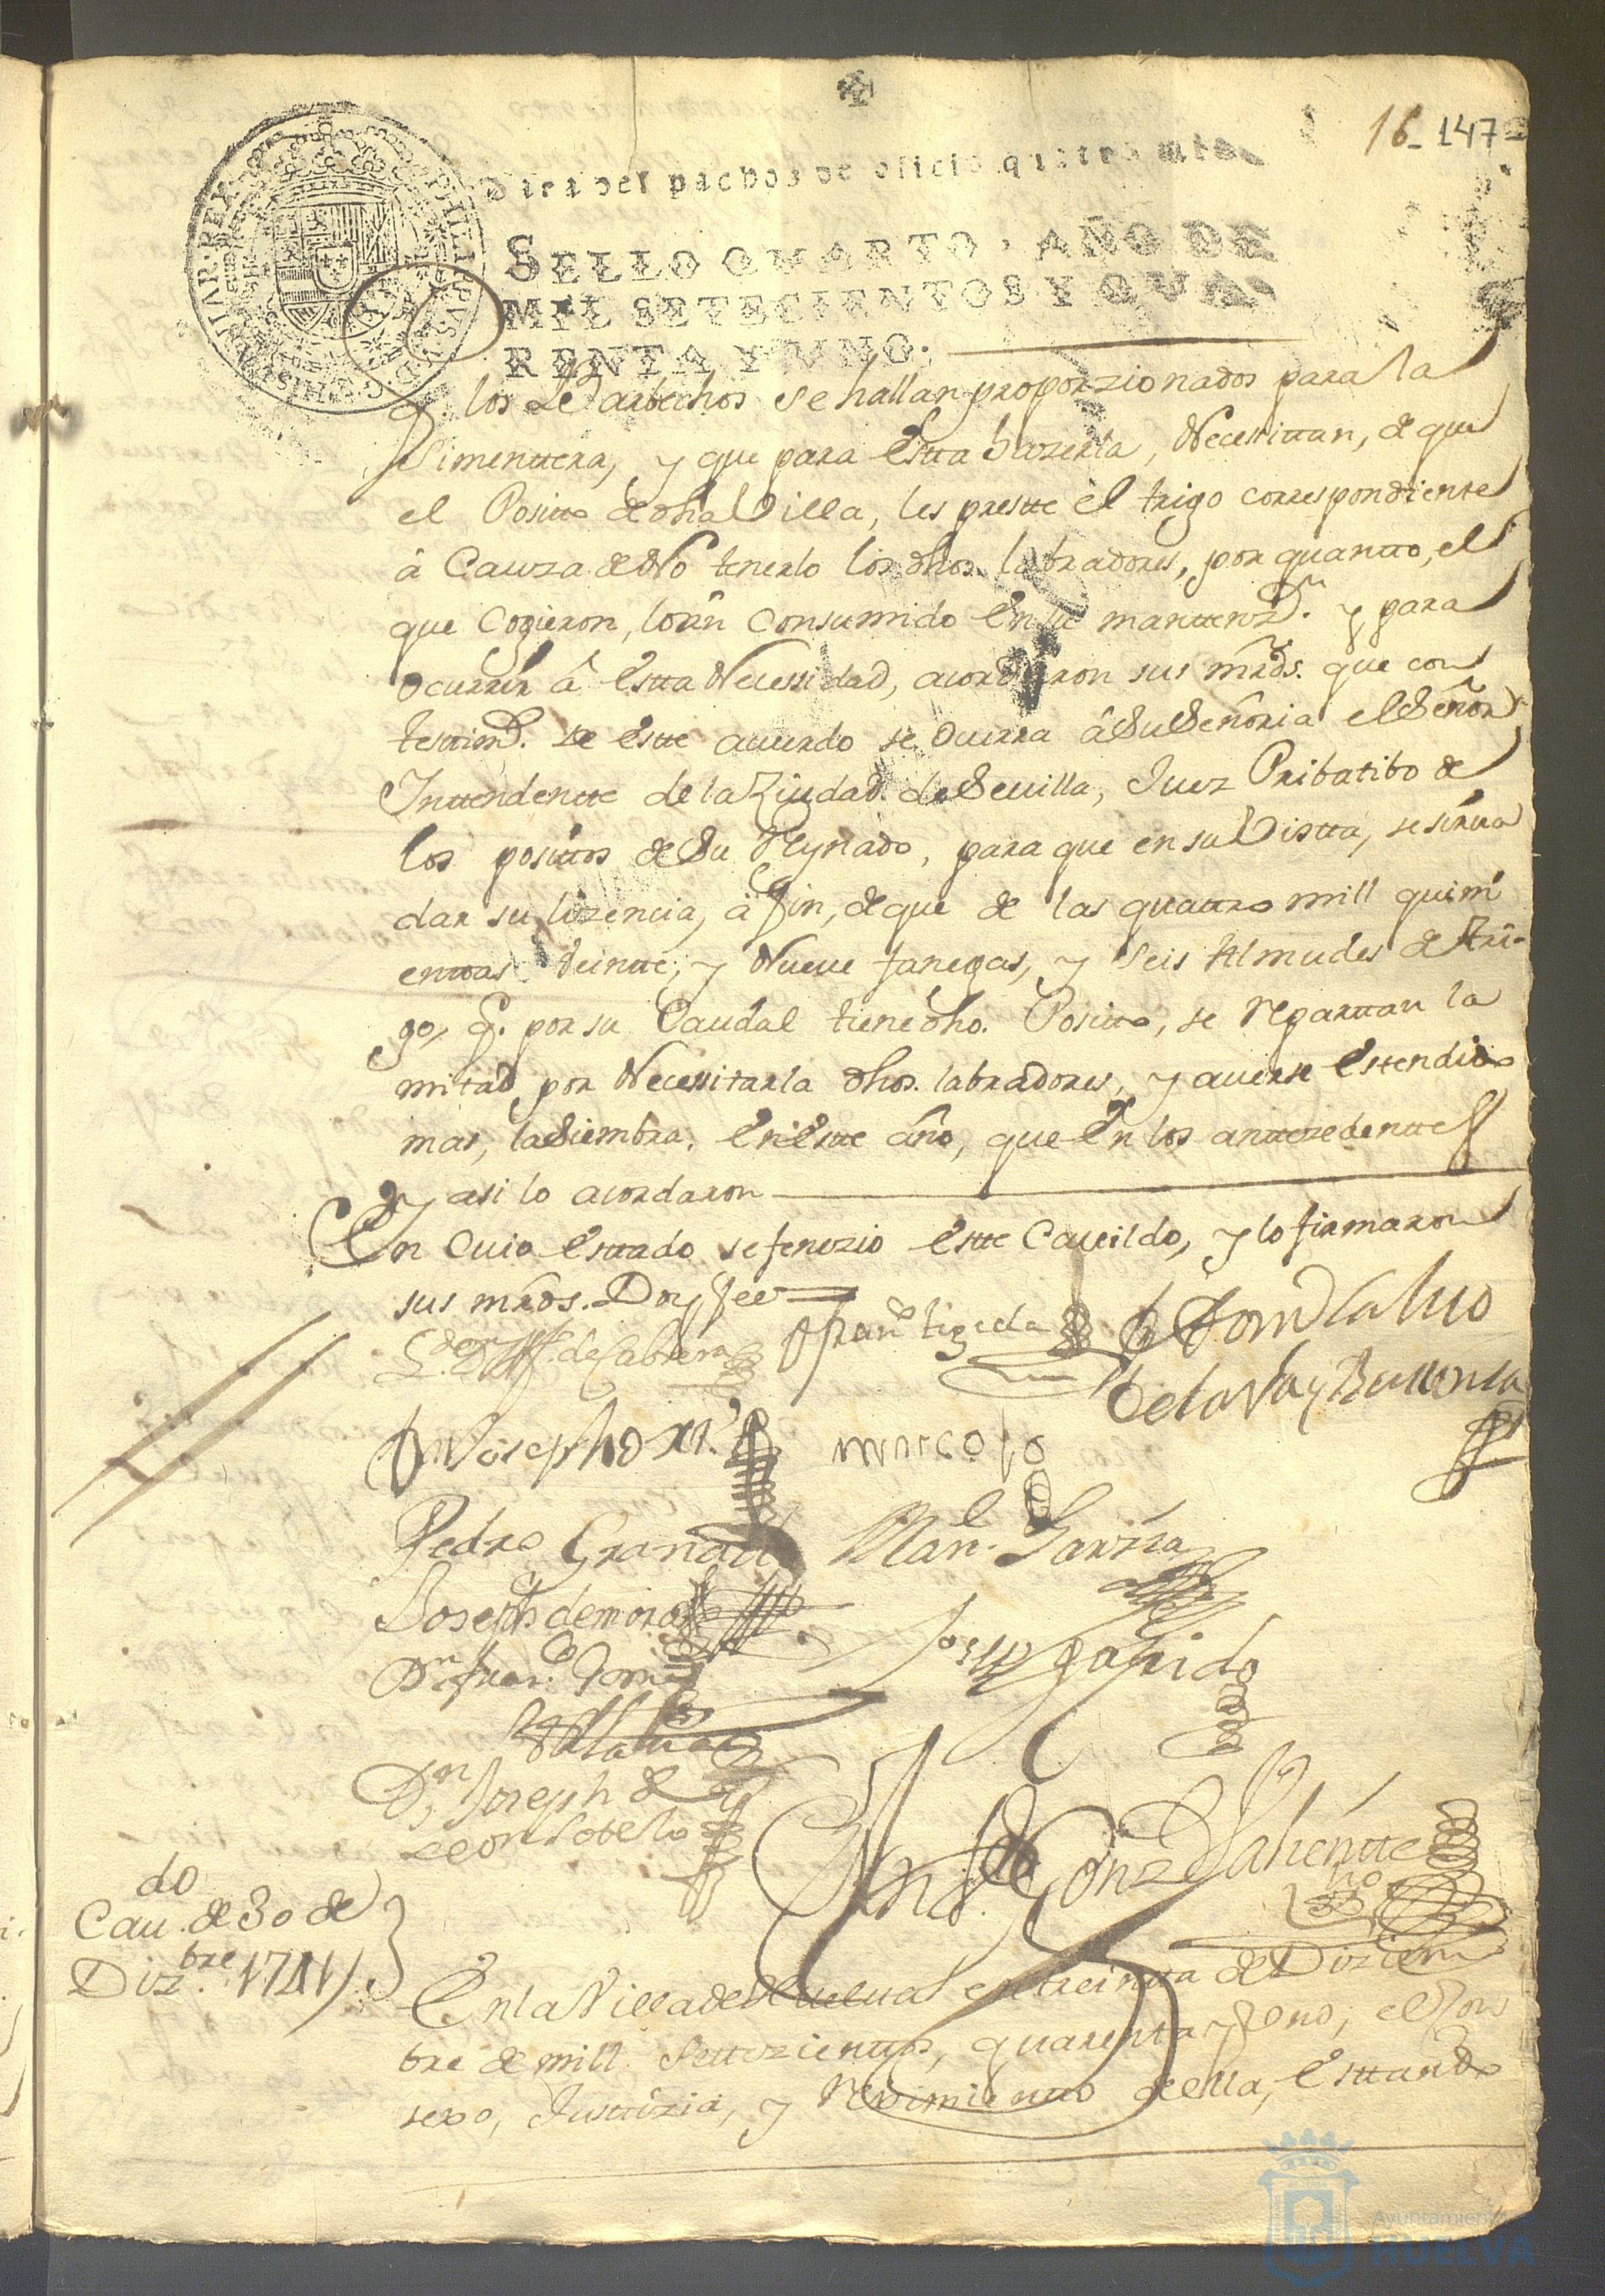 16_ 147
Para despachos de oficio quatro mrs.
SELLO QVARTO, AÑO DE
MIL SETECIENTOS Y QVA-
RENTA Y VNO.
PHILIPPUS V D G HISPANIAR REX
q. los Barbechos se hallan proporzionados para la
Simenttera, y que para estta hazerla, Necesittan, de que
el Positto de dha Villa, les prestte el trigo correspondiente
â Cauza de No tenerlo los dhos. labradores, por quantto, el
que Cogieron, lo ân Consumido En su manttenzn. y para
ocurrir â Estta Necessidad, acordaron sus mrds. que con
testtimo. de estte acuerdo se ocurra â Su Señoria el Señor
Inttendentte de la Ziudad de Sevilla, Juez Pribatibo de
los posittos de Su Reynado, para que en su Vistta, se sirua
dar su lizencia, â fin, de que de las quattro mill quini
enttas Veintte, y Nueve fanegas, y Seis Almudes de Tri-
go, q. por su Caudal tiene dho. Positto, se reparttan la
mitad por Necessitarla dhos. labradores, y averse Estendido
mas, la Siembra, En Estte año, que En los anttezedenttes
y asi lo acordaron
En Cuio Esttado se fenezio Estte Cavildo, y lo firmaron
sus mrds. Doy fee
de Cabrera
Pedro Granado
Man.l Garzia
Joseph de mora
Joseph garrido
Dn. Joseph de
Leon Sotelo
Gonz Valientte
do
Cau. de 30 de
Diz.bre 1741
En la Villa de Huelva en treintta de Diziem
bre de mill Settezienttos, quarenta y Uno, el Con
sexo, Justtizia, y Reximientto de ella, Esttando
Ayuntamiento
HUELVA